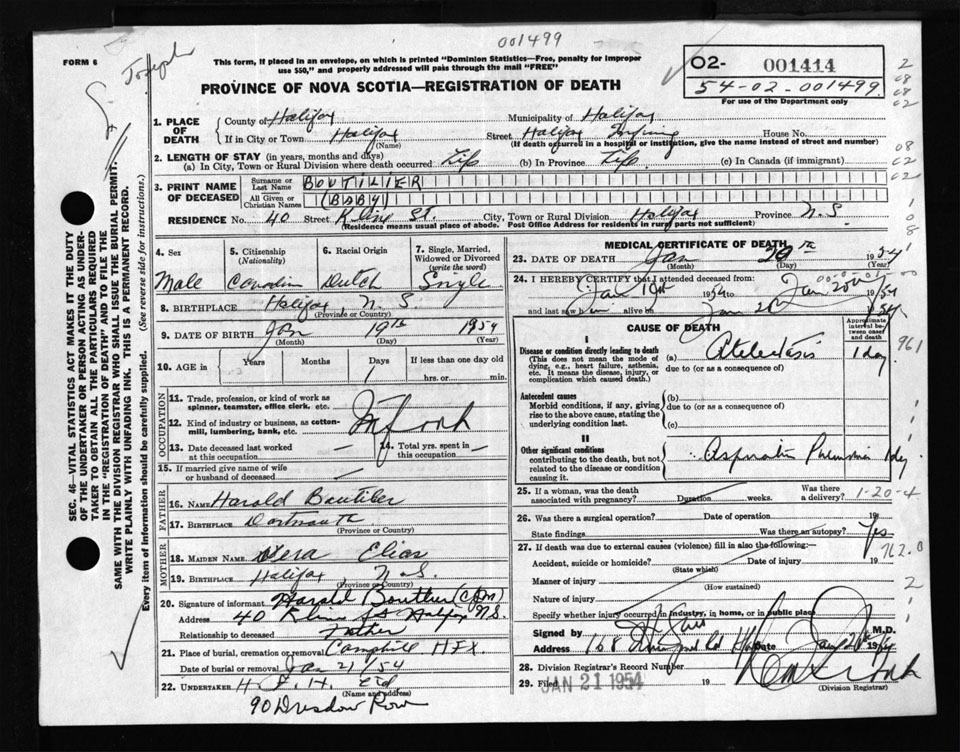 001499
FORM 6
Joseph
This form, if placed in an envelope, on which is printed "Dominion Statistics—Free, penalty for improper
use $50," and properly addressed will pass through the mail "FREE"
O2- 001414
54-02-001499
For use of the Department only
PROVINCE OF NOVA SCOTIA—REGISTRATION OF DEATH
1. PLACE OF DEATH
County of Halifax Municipality of Halifax
If in City or Town Halifax Street Halifax Infirmary House No.
(Name) (If death occurred in a hospital or institution, give the name instead of street and number)
2. LENGTH OF STAY (in years, months and days)
(a) In City, Town or Rural Division where death occurred Life (b) In Province Life (c) In Canada (if immigrant)
3. PRINT NAME OF DECEASED
Surname or Last Name BOUTILIER
All Given or Christian Names (BABY)
RESIDENCE No. 40 Street Kline St. City, Town or Rural Division Halifax Province N.S.
(Residence means usual place of abode. Post Office Address for residents in rural parts not sufficient)
4. Sex 5. Citizenship (Nationality) 6. Racial Origin 7. Single, Married, Widowed or Divorced (write the word)
Male Canadian Dutch Single
8. BIRTHPLACE Halifax N S
(Province or Country)
9. DATE OF BIRTH Jan 19th 1954
(Month) (Day) (Year)
10. AGE in Years Months Days 1 If less than one day old
hrs. or min.
OCCUPATION
11. Trade, profession, or kind of work as spinner, teamster, office clerk, etc.
12. Kind of industry or business, as cotton-mill, lumbering, bank, etc.
13. Date deceased last worked at this occupation — 14. Total yrs. spent in this occupation —
15. If married give name of wife or husband of deceased —
FATHER
16. NAME Harold Boutilier
17. BIRTHPLACE Dartmouth
(Province or Country)
MOTHER
18. MAIDEN NAME Vera Elias
19. BIRTHPLACE Halifax N.S.
(Province or Country)
20. Signature of informant Harold Boutilier
Address 40 Kline St Halifax N.S.
Relationship to deceased Father
21. Place of burial, cremation or removal Camphill HFX.
Date of burial or removal Jan 21/54
22. UNDERTAKER
(Name and address)
90 Dresden Row
MEDICAL CERTIFICATE OF DEATH
23. DATE OF DEATH Jan 20th 1954
(Month) (Day) (Year)
24. I HEREBY CERTIFY that I attended deceased from:
Jan 19th 1954 to Jan 20th 1954
and last saw him alive on Jan 20 1954
CAUSE OF DEATH
Approximate interval between onset and death
I
Disease or condition directly leading to death
(This does not mean the mode of dying, e.g., heart failure, asthenia, etc. It means the disease, injury, or complication which caused death.)
(a) Atelectasis 1 day
due to (or as a consequence of)
Antecedent causes
Morbid conditions, if any, giving rise to the above cause, stating the underlying condition last.
(b)
due to (or as a consequence of)
(c)
II
Other significant conditions
contributing to the death, but not related to the disease or condition causing it.
Aspiration Pneumonia 1 day
25. If a woman, was the death associated with pregnancy? Duration weeks. Was there a delivery? 1-20-4
26. Was there a surgical operation? Date of operation 19
State findings Was there an autopsy? Yes
27. If death was due to external causes (violence) fill in also the following:—
762.0
Accident, suicide or homicide? Date of injury 19
(State which)
Manner of injury
(How sustained)
Nature of injury
Specify whether injury occurred in industry, in home, or in public place
Signed by M.D.
Address 168 Date Jan 20th 1954
28. Division Registrar's Record Number
29. Filed JAN 21 1954 19
(Division Registrar)
SEC. 46—VITAL STATISTICS ACT MAKES IT THE DUTY
OF THE UNDERTAKER OR PERSON ACTING AS UNDERTAKER
TO OBTAIN ALL THE PARTICULARS REQUIRED
IN THE "REGISTRATION OF DEATH" AND TO FILE THE
SAME WITH THE DIVISION REGISTRAR WHO SHALL ISSUE THE BURIAL PERMIT.
WRITE PLAINLY WITH UNFADING INK. THIS IS A PERMANENT RECORD.
Every item of information should be carefully supplied. (See reverse side for instructions.)